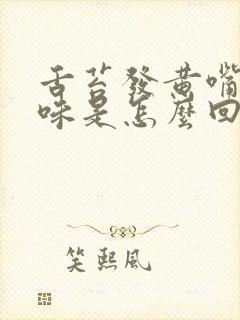 舌苔發黃嘴
味是怎麼回
笑熙風